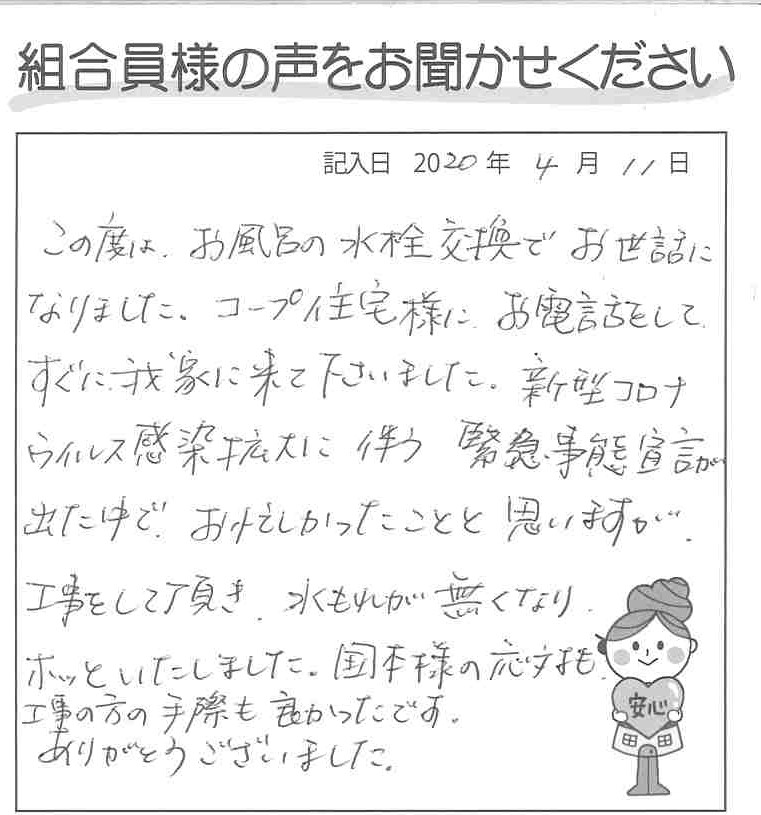 組合員様の声をお聞かせください
記入日 2020年 4月 11日
この度は、お風呂の水栓交換でお世話に
なりました。コープ住宅様に、お電話をして、
すぐに我家に来て下さいました。新型コロナ
ウイルス感染拡大に伴う緊急事態宣言が
出た中で、お忙しかったことと思いますが、
工事をして頂き、水もれが無くなり、
ホッといたしました。国本様の応対も、
工事の方の手際も良かったです。
ありがとうございました。
安心